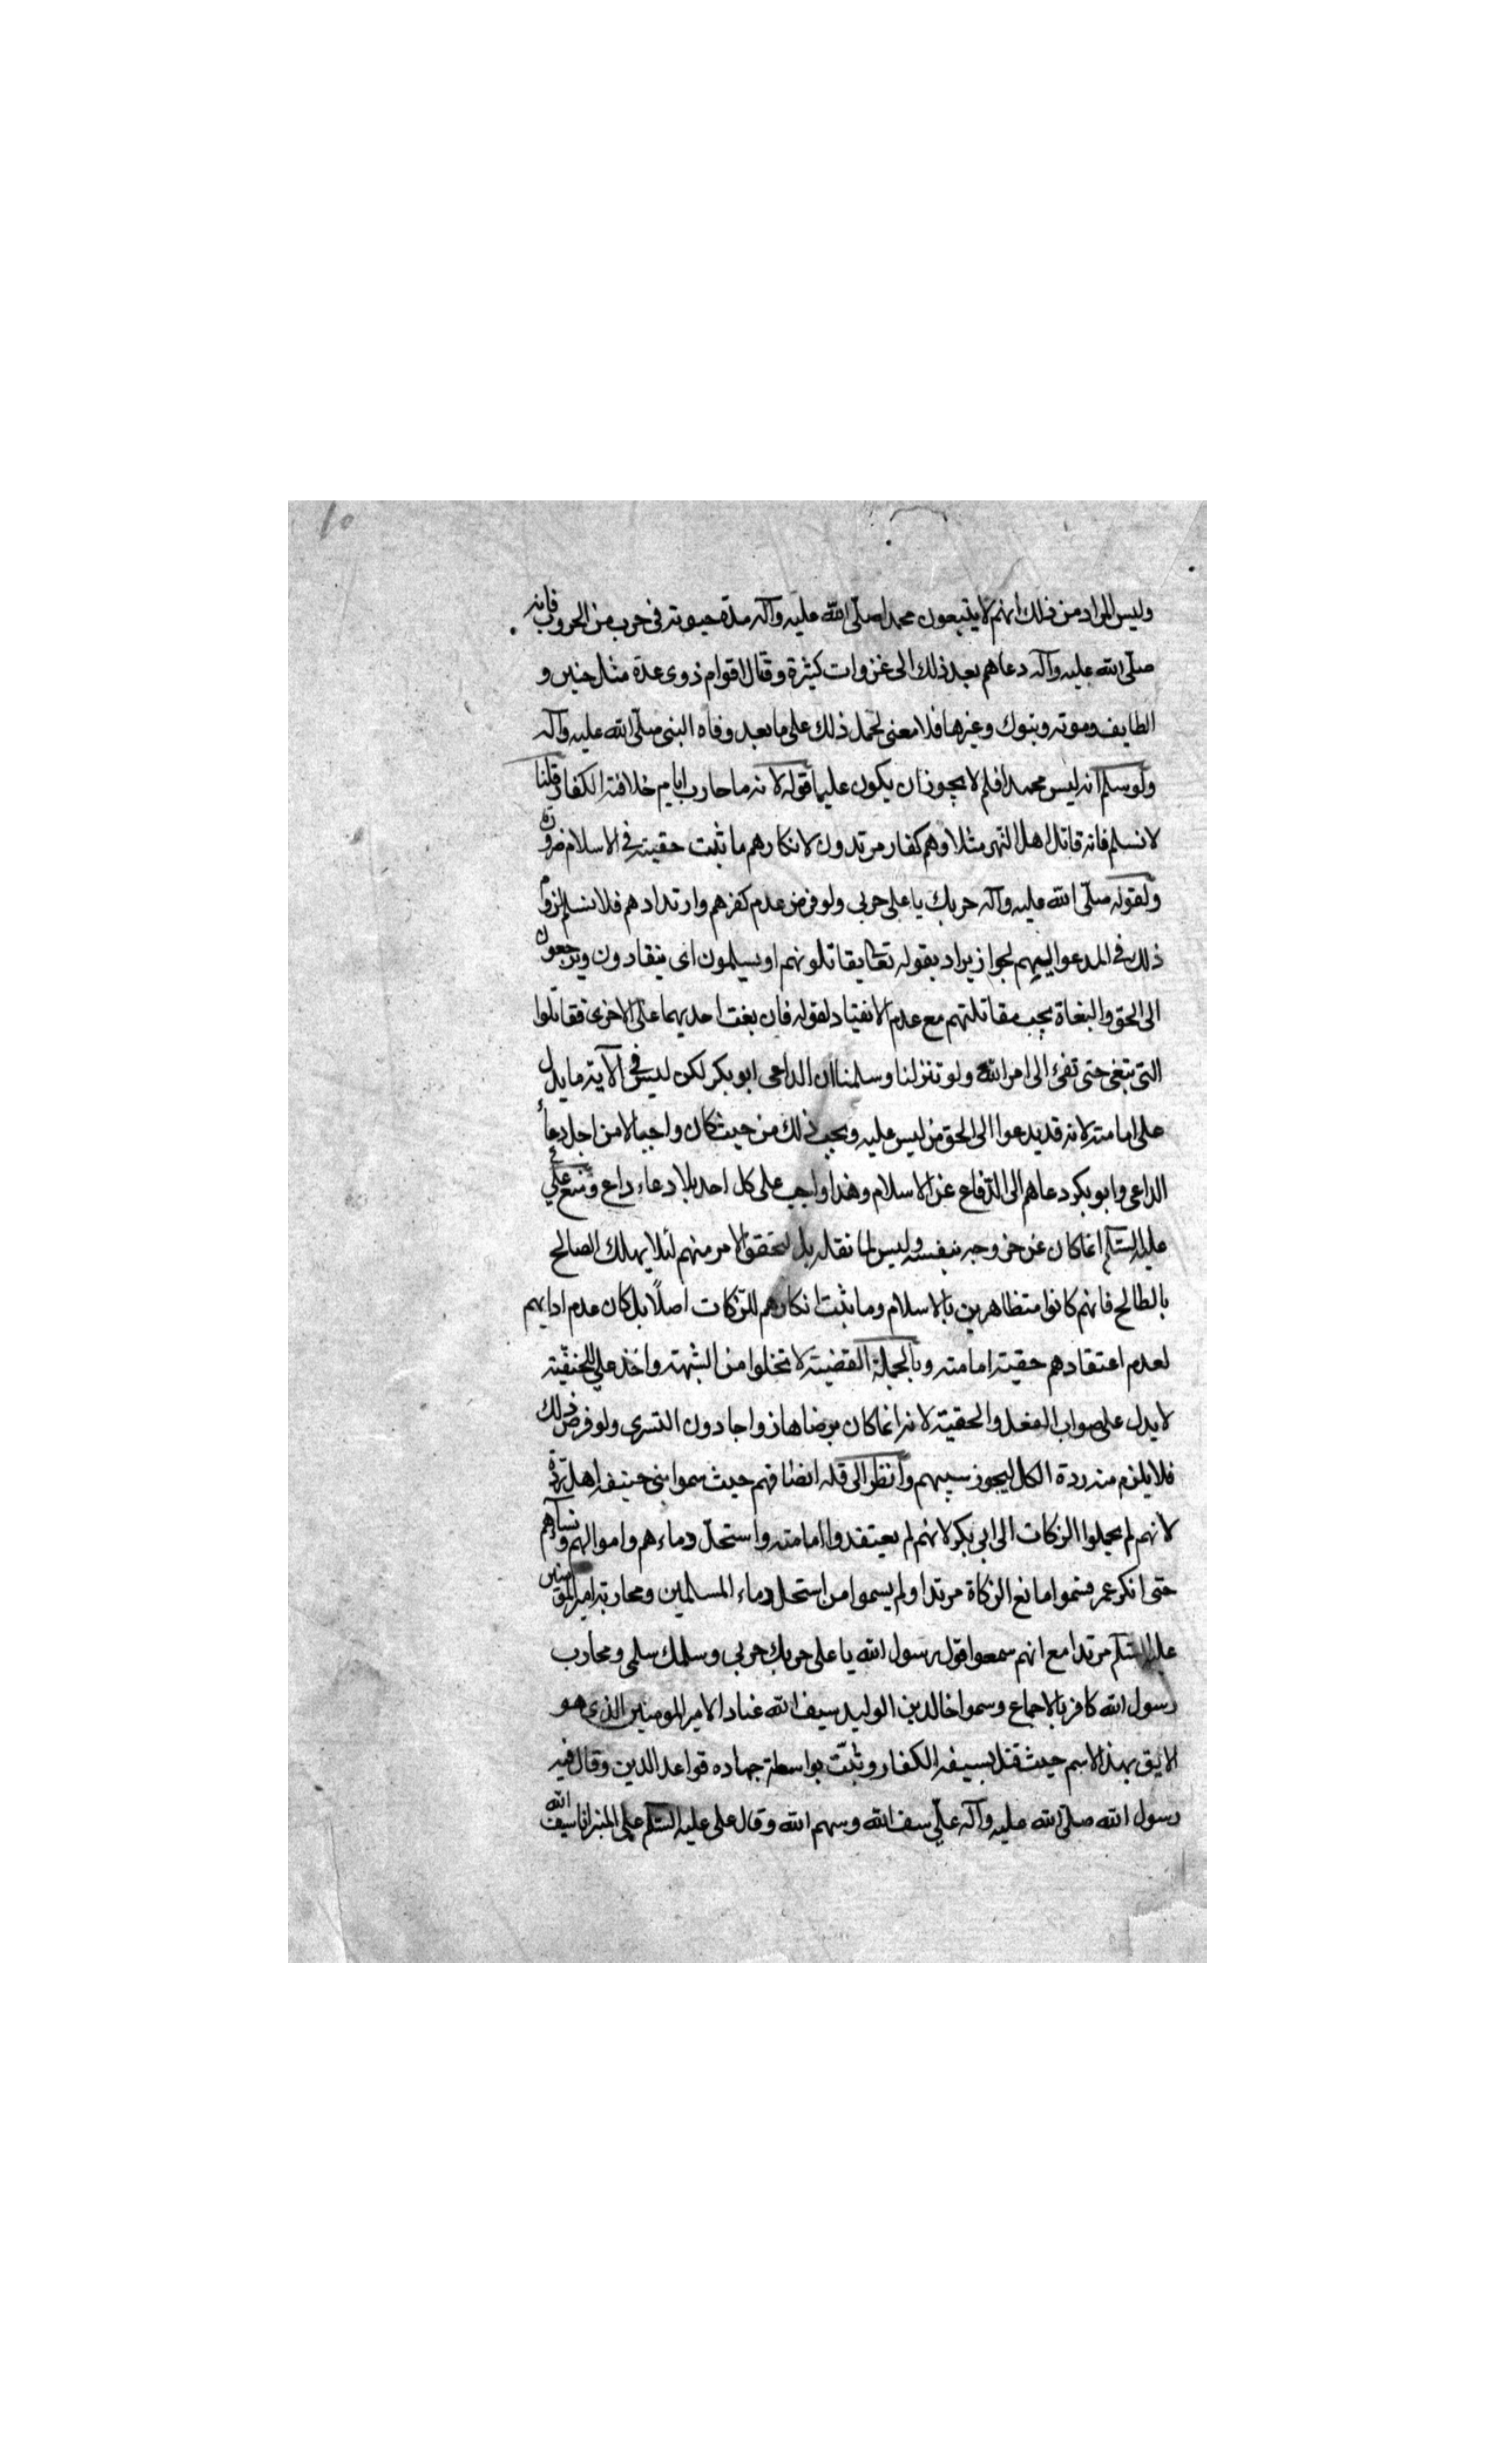 وليس المراد من ذلك انهم لا يتبعون محمدا صلّى الله عليه وآله مدة حيوته في حرب من الحروب فانه
صلّى الله عليه وآله دعاهم بعد ذلك الى غزوات كثيرة وقتال اقوام ذوى عدة مثل حنين و
الطايف وموته وتبوك وغيرها فلا معنى لحمل ذلك على ما بعد وفاه النبى صلّى الله عليه وآله
ولو سلم انه ليس محمدا فلم لا يجوز ان يكون عليا قوله لانه ما حارب ايام خلافته الكفار قلنا
لا نسلم فانه قاتل اهل النهر مثلا وهم كفار مرتدون لانكارهم ما ثبت حقيته في الاسلام ضرورة
ولقوله صلّى الله عليه وآله حربك يا على حربى ولو فرض عدم كفرهم وارتدادهم فلا نسلم لزوم
ذلك في المدعو اليهم لجواز يراد بقوله تعالى يقاتلونهم او يسلمون اى ينقادون ويرجعون
الى الحق والبغاة يجب مقاتلتهم مع عدم الانقياد لقوله فان بغت احديهما على الاخرى فقاتلوا
التى تبغى حتى تفئ الى امر الله ولو تنزلنا وسلمنا ان الداعى ابو بكر لكن ليس في الآية ما يدل
على امامته لانه قد يدعوا الى الحق من ليس عليه ويجب ذلك من حيث كان واجبا لا من اجل دعاء
الداعى وابو بكر دعاهم الى الدفاع عن الاسلام وهذا واجب على كل احد بلا دعاء داع ومنع على
عليه السلم انما كان عن خروجه بنفسه وليس لما نقله بل لتحقق الامر منهم لئلا يهلك الصالح
بالطالح فانهم كانوا متظاهرين بالاسلام وما ثبت انكارهم للزكات اصلًا بل كان عدم ادايهم
لعدم اعتقادهم حقيته امامته وبالجملة القضية لا تخلوا من الشبهة واخذ على للحنفيّة
لا يدل على صواب الفعل والحقية لانه انما كان برضاها زواجا دون التسرى ولو فرض ذلك
فلا يلزم منه ردة الكل ليجوز سبيهم وانظر الى قلة انصافهم حيث سموا بنى حنيفه اهل ردّة
لانهم لم يحملوا الزكات الى ابى بكر لانهم لم يعتقدوا امامته واستحلّ دماءهم واموالهم ونساءهم
حتى انكر عمر فسموا مانع الزكاة مرتدا ولم يسموا من استحل دماء المسلمين ومحاربة امير المؤمنين
عليه السلم مرتدا مع انهم سمعوا قول رسول الله يا على حربك حربى وسلمك سلمى ومحارب
رسول الله كافر بالاجماع وسموا خالد بن الوليد سيف الله عنادا لامير المومنين الذى هو
الايق بهذا الاسم حيث قتل بسيفه الكفار وثبتت بواسطة جهاده قواعد الدين وقال فيه
رسول الله صلّى الله عليه وآله علىّ سيف الله وسهم الله وقال على عليه السلم على المنبر انا سيف الله